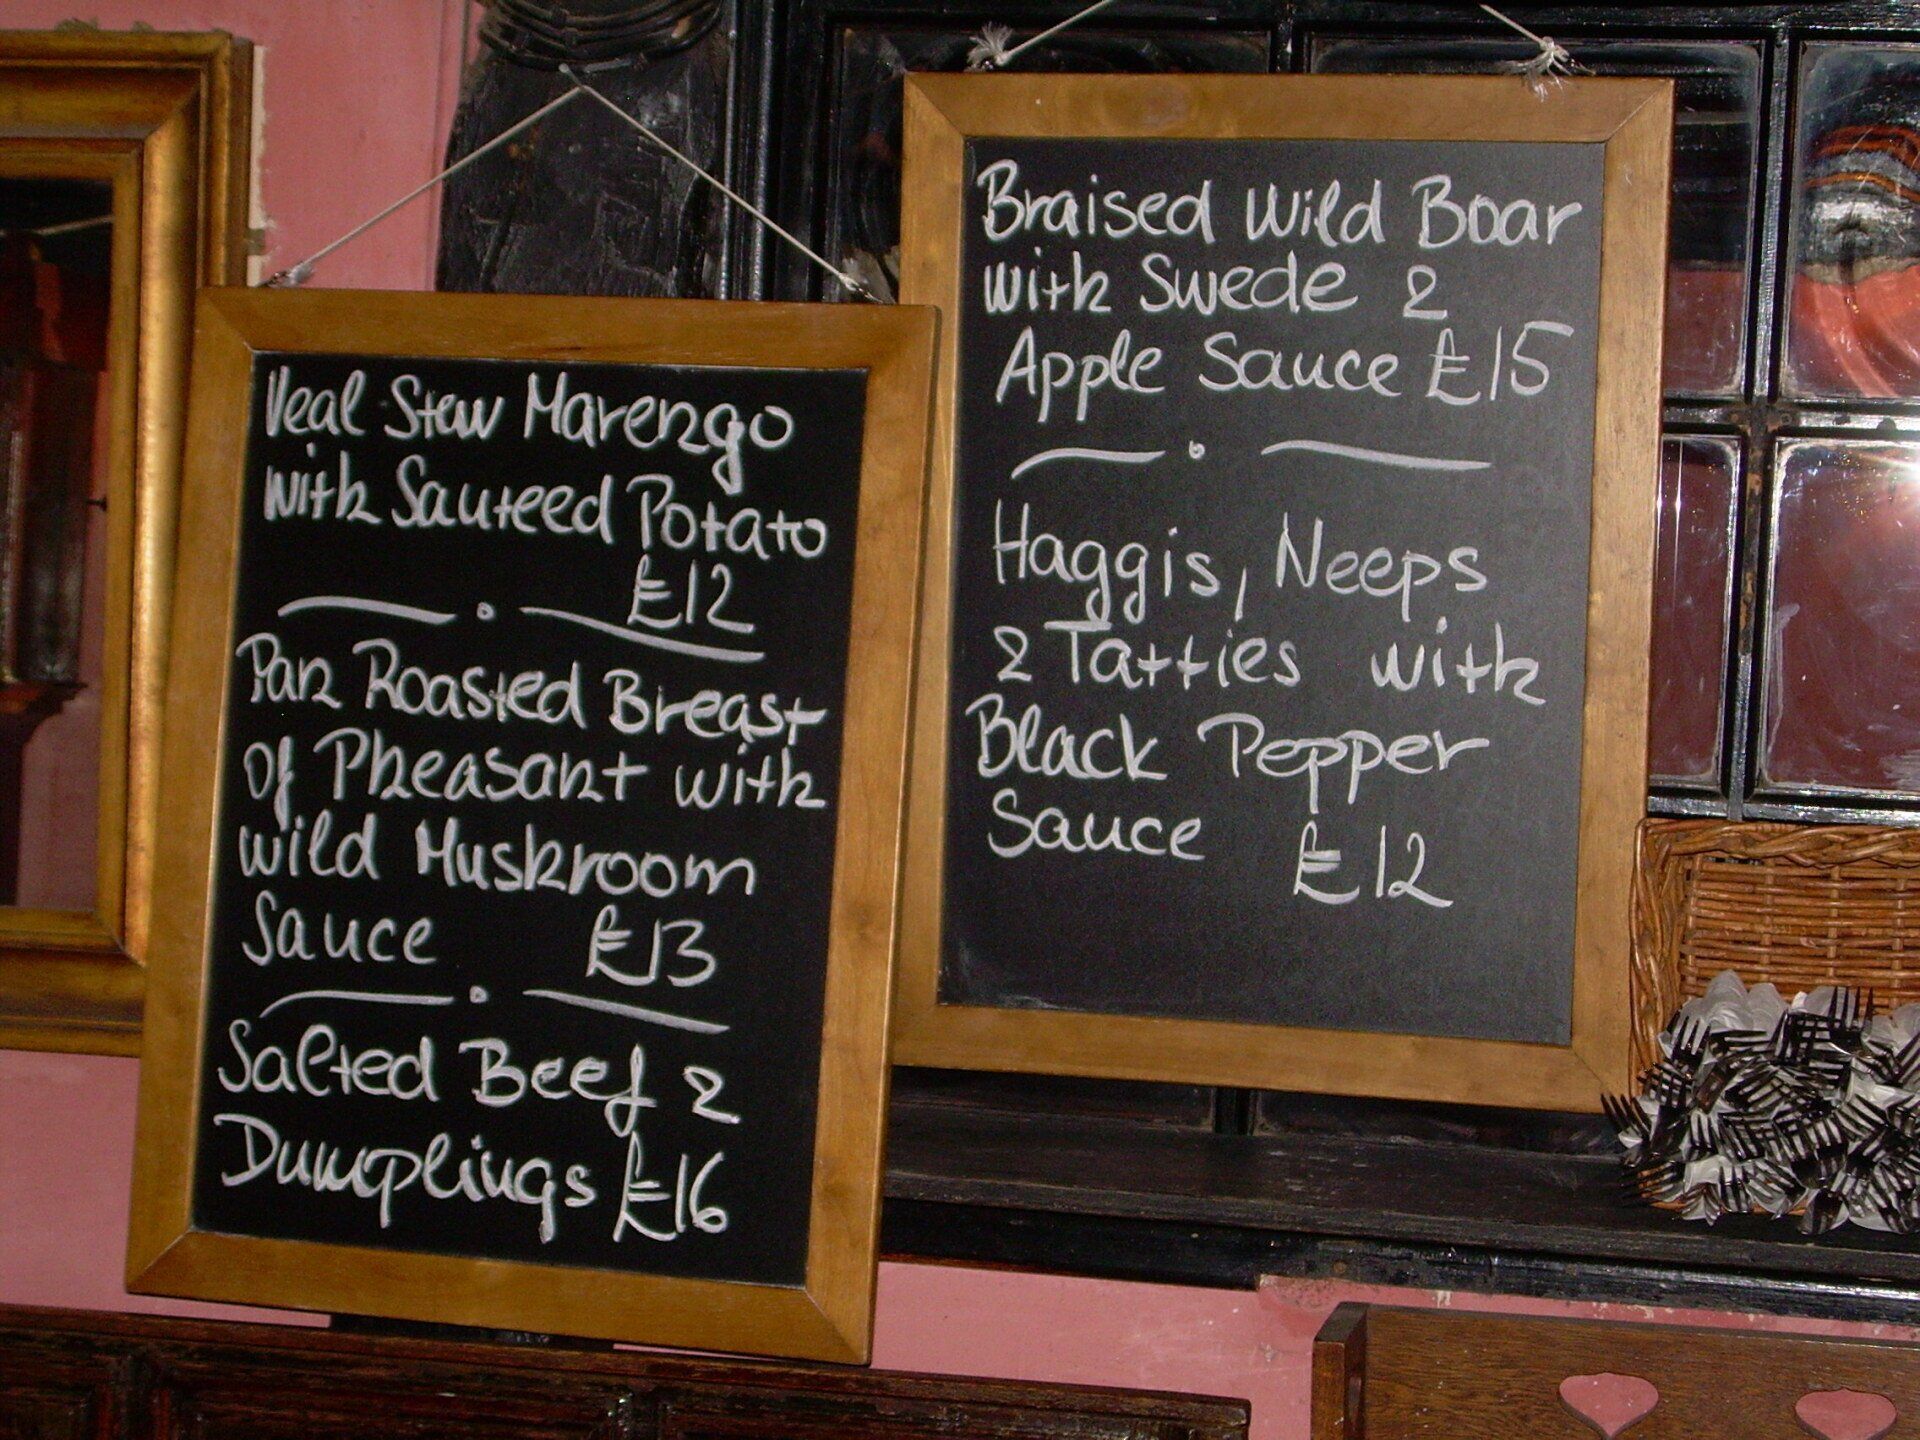 Veal Stew Marengo
with Sauteed Potato
£12
Pan Roasted Breast
of Pheasant with
wild Mushroom
Sauce £13
Salted Beef &
Dumplings £16
Braised Wild Boar
with Swede &
Apple Sauce £15
Haggis, Neeps
& Tatties with
Black Pepper
Sauce £12